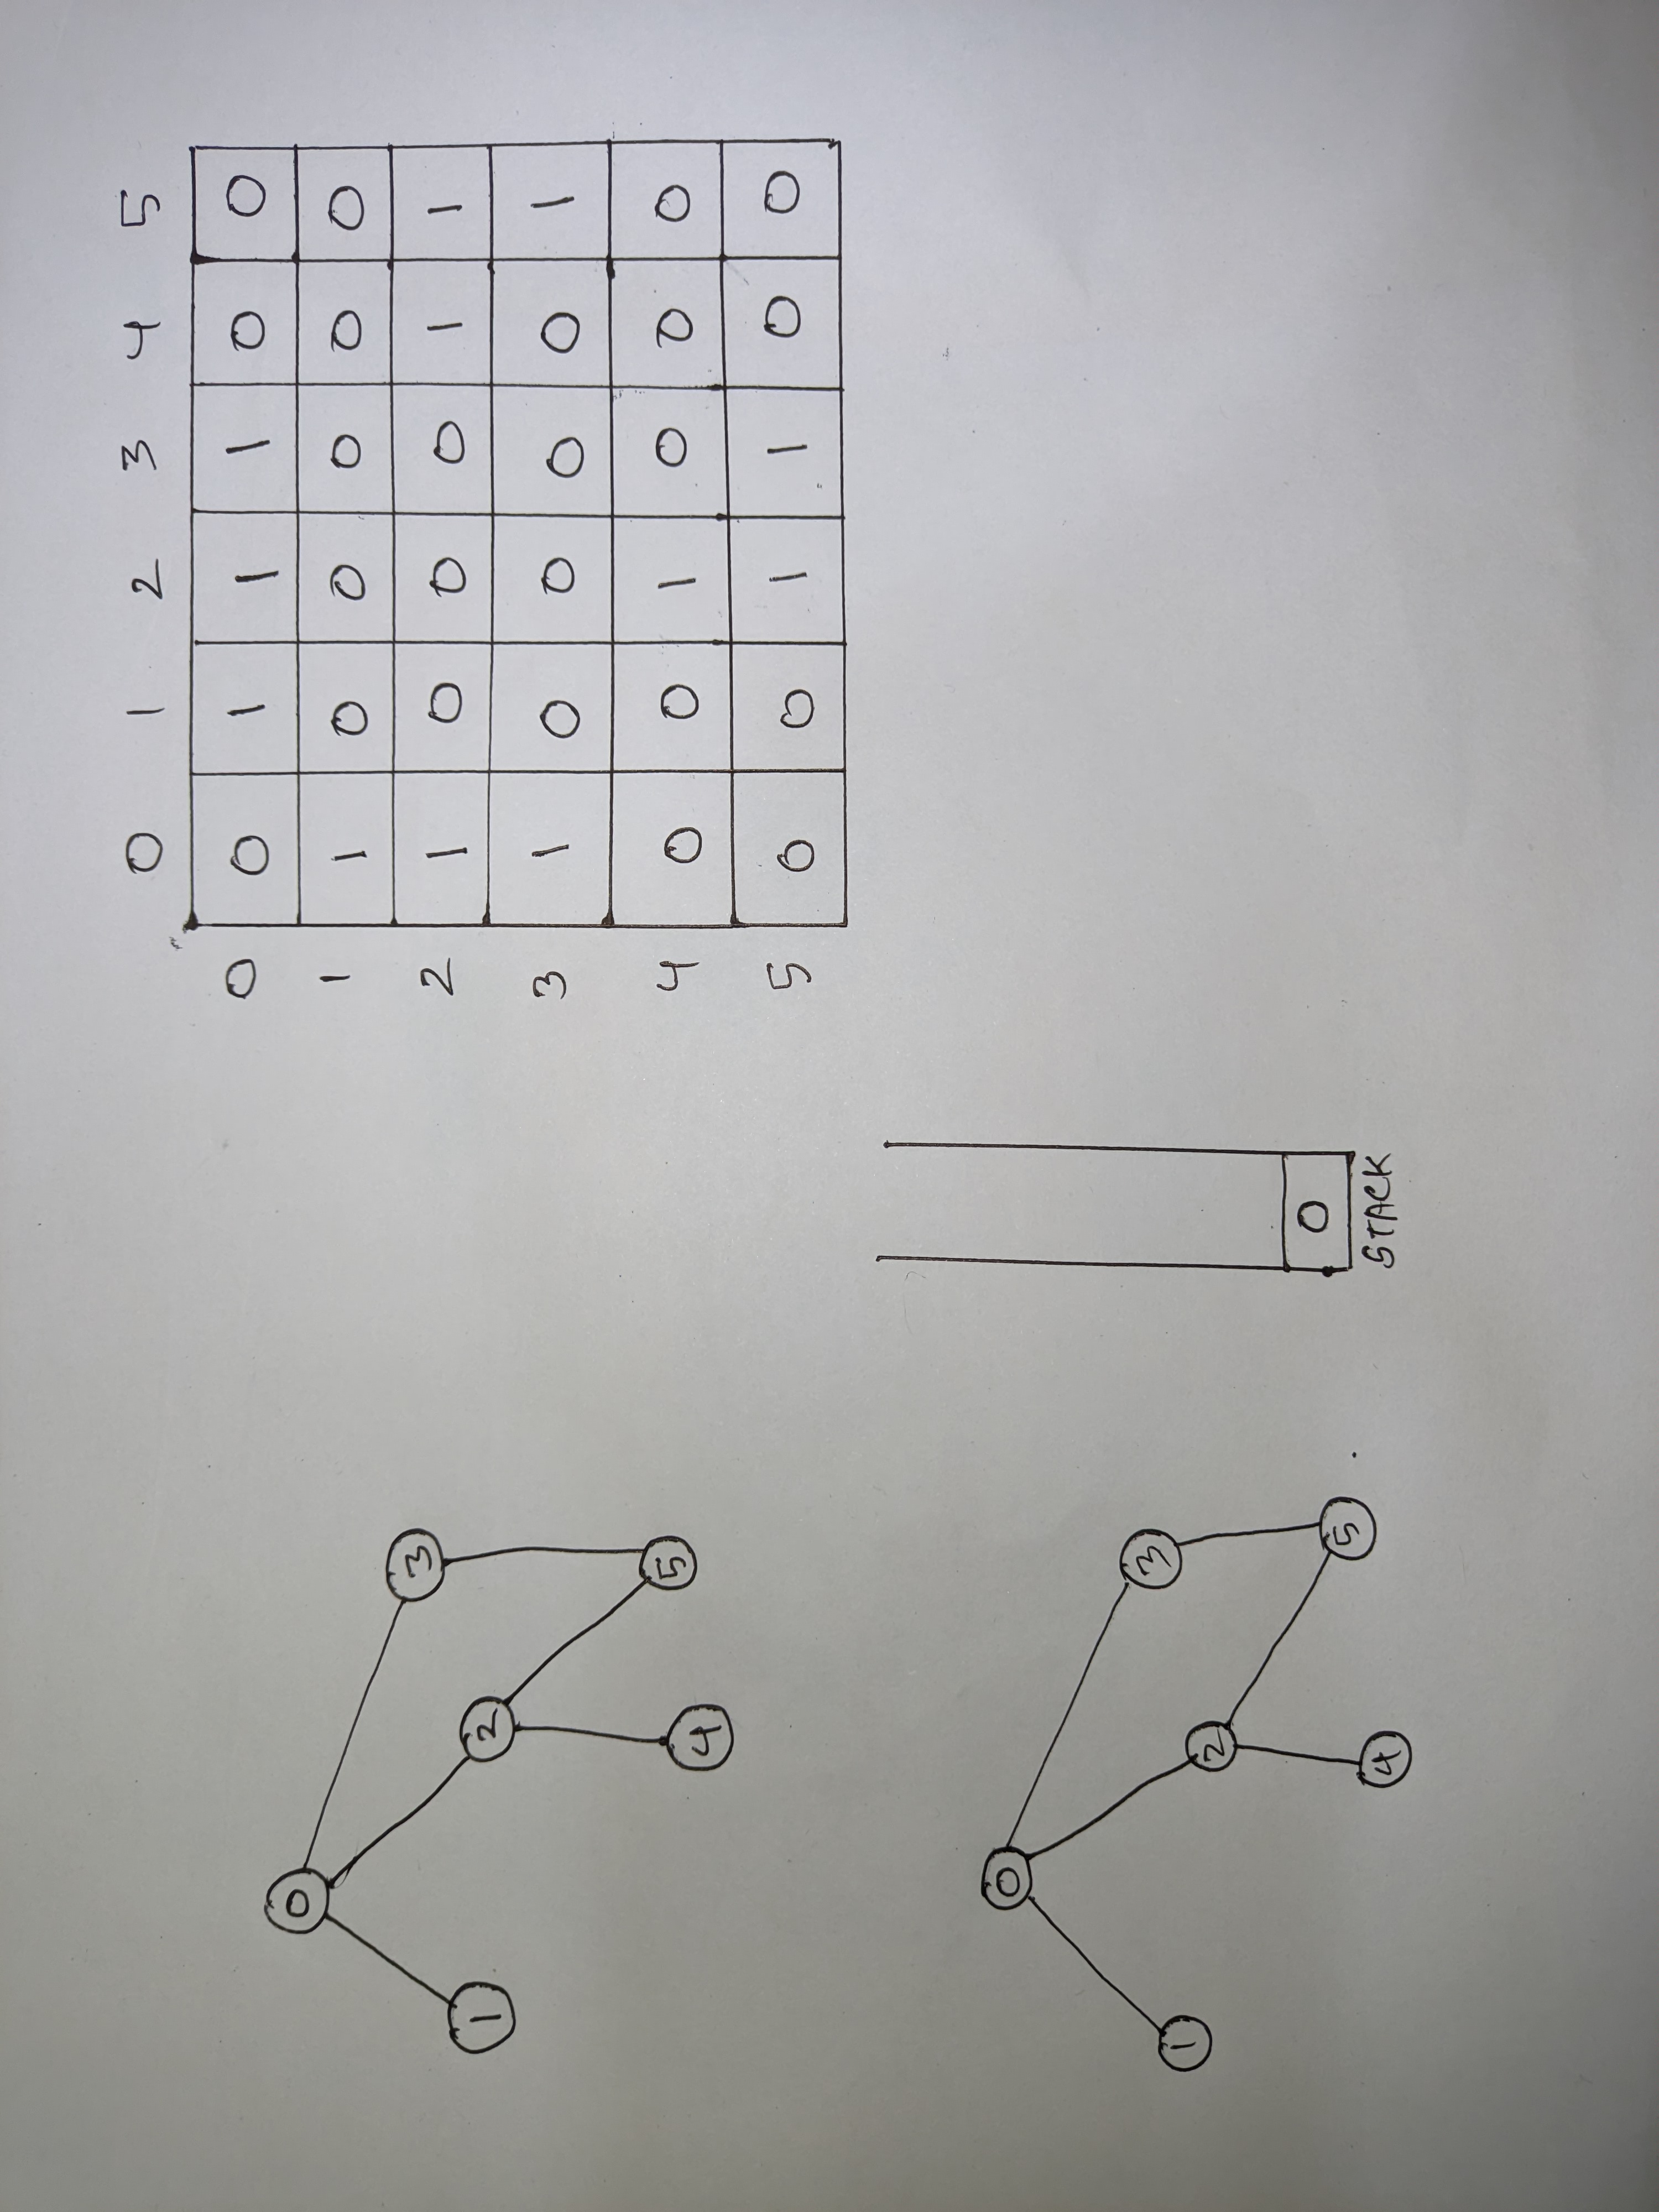 0
3
1
2
5
4
0 1 2 3 4 5
0 0 1 1 1 0 0
1 1 0 0 0 0 0
2 1 0 0 0 1 1
3 1 0 0 0 0 1
4 0 0 1 0 0 0
5 0 0 1 1 0 0
0
3
1
2
5
4
0
STACK